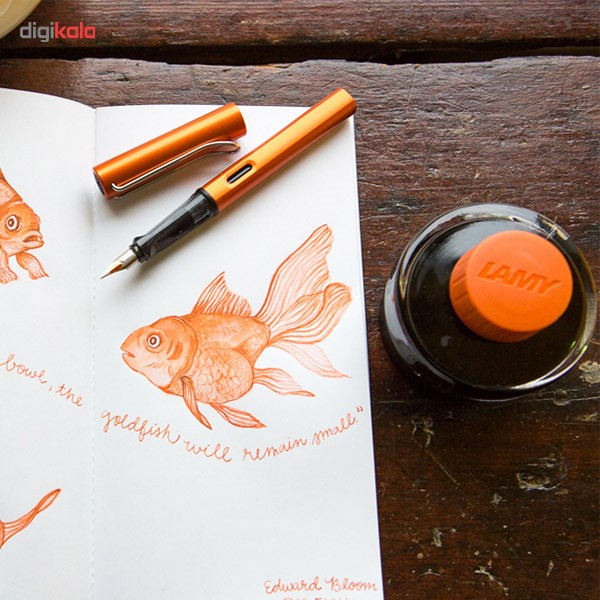 digikala
LAMY
bowl, the
goldfish will remain small."
Edward Bloom